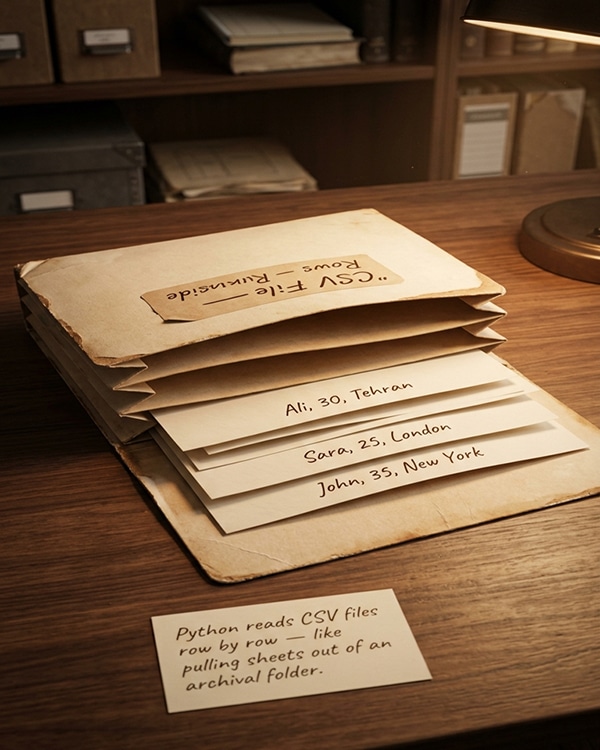 "CSV File —
Rows —
Ali, 30, Tehran
Sara, 25, London
John, 35, New York
Python reads CSV files
row by row — like
pulling sheets out of an
archival folder.